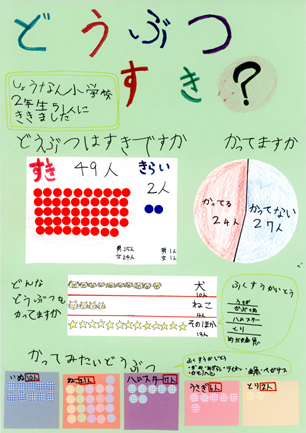 どうぶつ
すき?
しょうなん小学校
2年生51人に
ききました
どうぶつはすきですか
かってますか
すき 49人
きらい
2人
男25人
女24人
男1人
女1人
かってる
24人
かってない
27人
どんな
どうぶつを
かってますか
犬
ねこ
そのほか
ふくすうかいとう
うさぎ
ハムスター
とり
かってみたいどうぶつ
いぬ
ねこ
ハムスター
うさぎ
とり2人